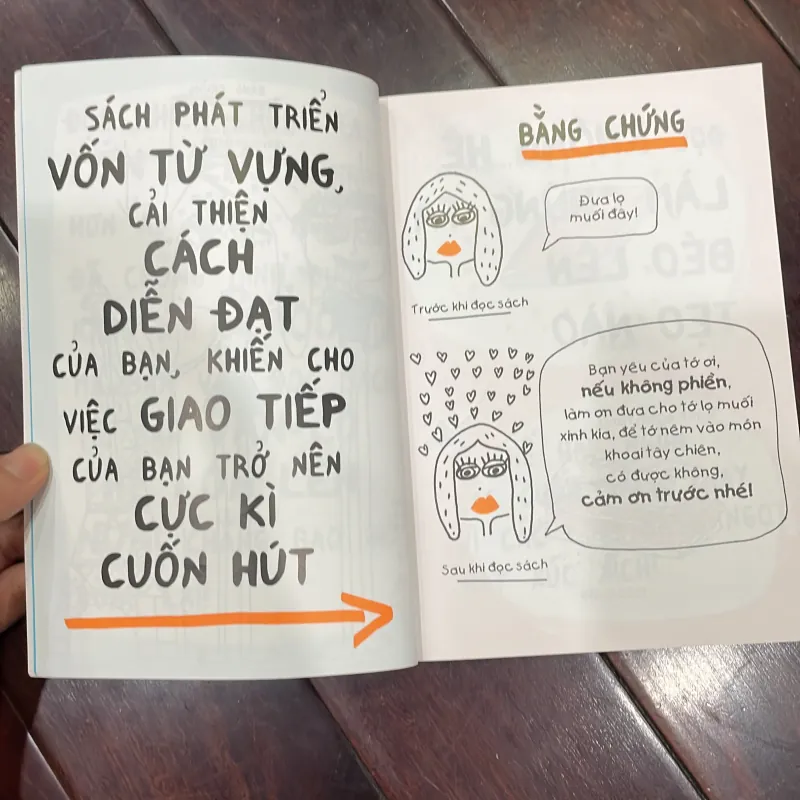 SÁCH PHÁT TRIỂN
VỐN TỪ VỰNG,
CẢI THIỆN
CÁCH
DIỄN ĐẠT
CỦA BẠN, KHIẾN CHO
VIỆC GIAO TIẾP
CỦA BẠN TRỞ NÊN
CỰC KÌ
CUỐN HÚT
BẰNG CHỨNG
Đưa lọ
muối đây!
Trước khi đọc sách
Bạn yêu của tớ ơi,
nếu không phiền,
làm ơn đưa cho tớ lọ muối
xinh kia, để tớ nêm vào món
khoai tây chiên,
có được không,
cảm ơn trước nhé!
Sau khi đọc sách